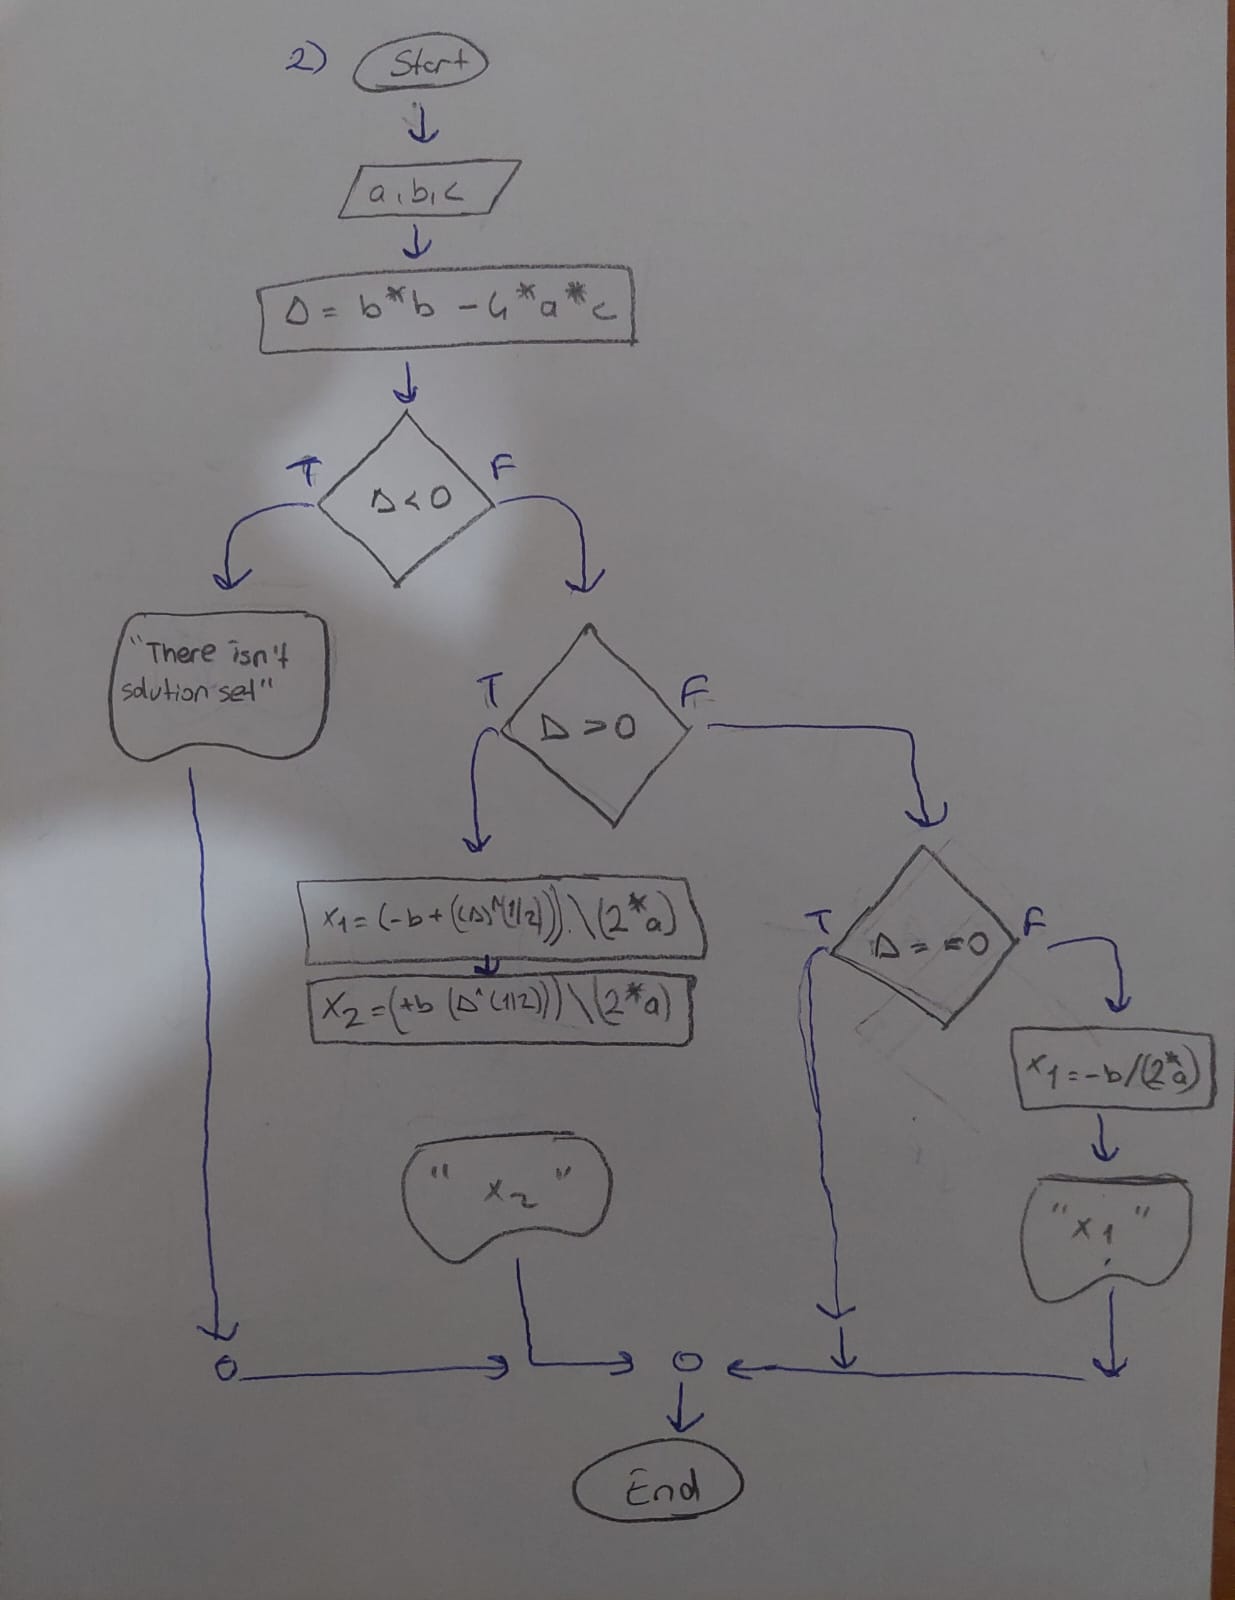 2) Start
a, b, c
Δ = b*b - 4*a*c
T F
Δ<0
"There isn't
solution set"
T F
Δ >0
x1 = (-b + ((Δ)^(1/2))).\(2*a)
x2 = (+b (Δ^(1/2)))\(2*a)
T F
Δ = =0
x1=-b/(2*a)
" x2 "
"x1 "
End